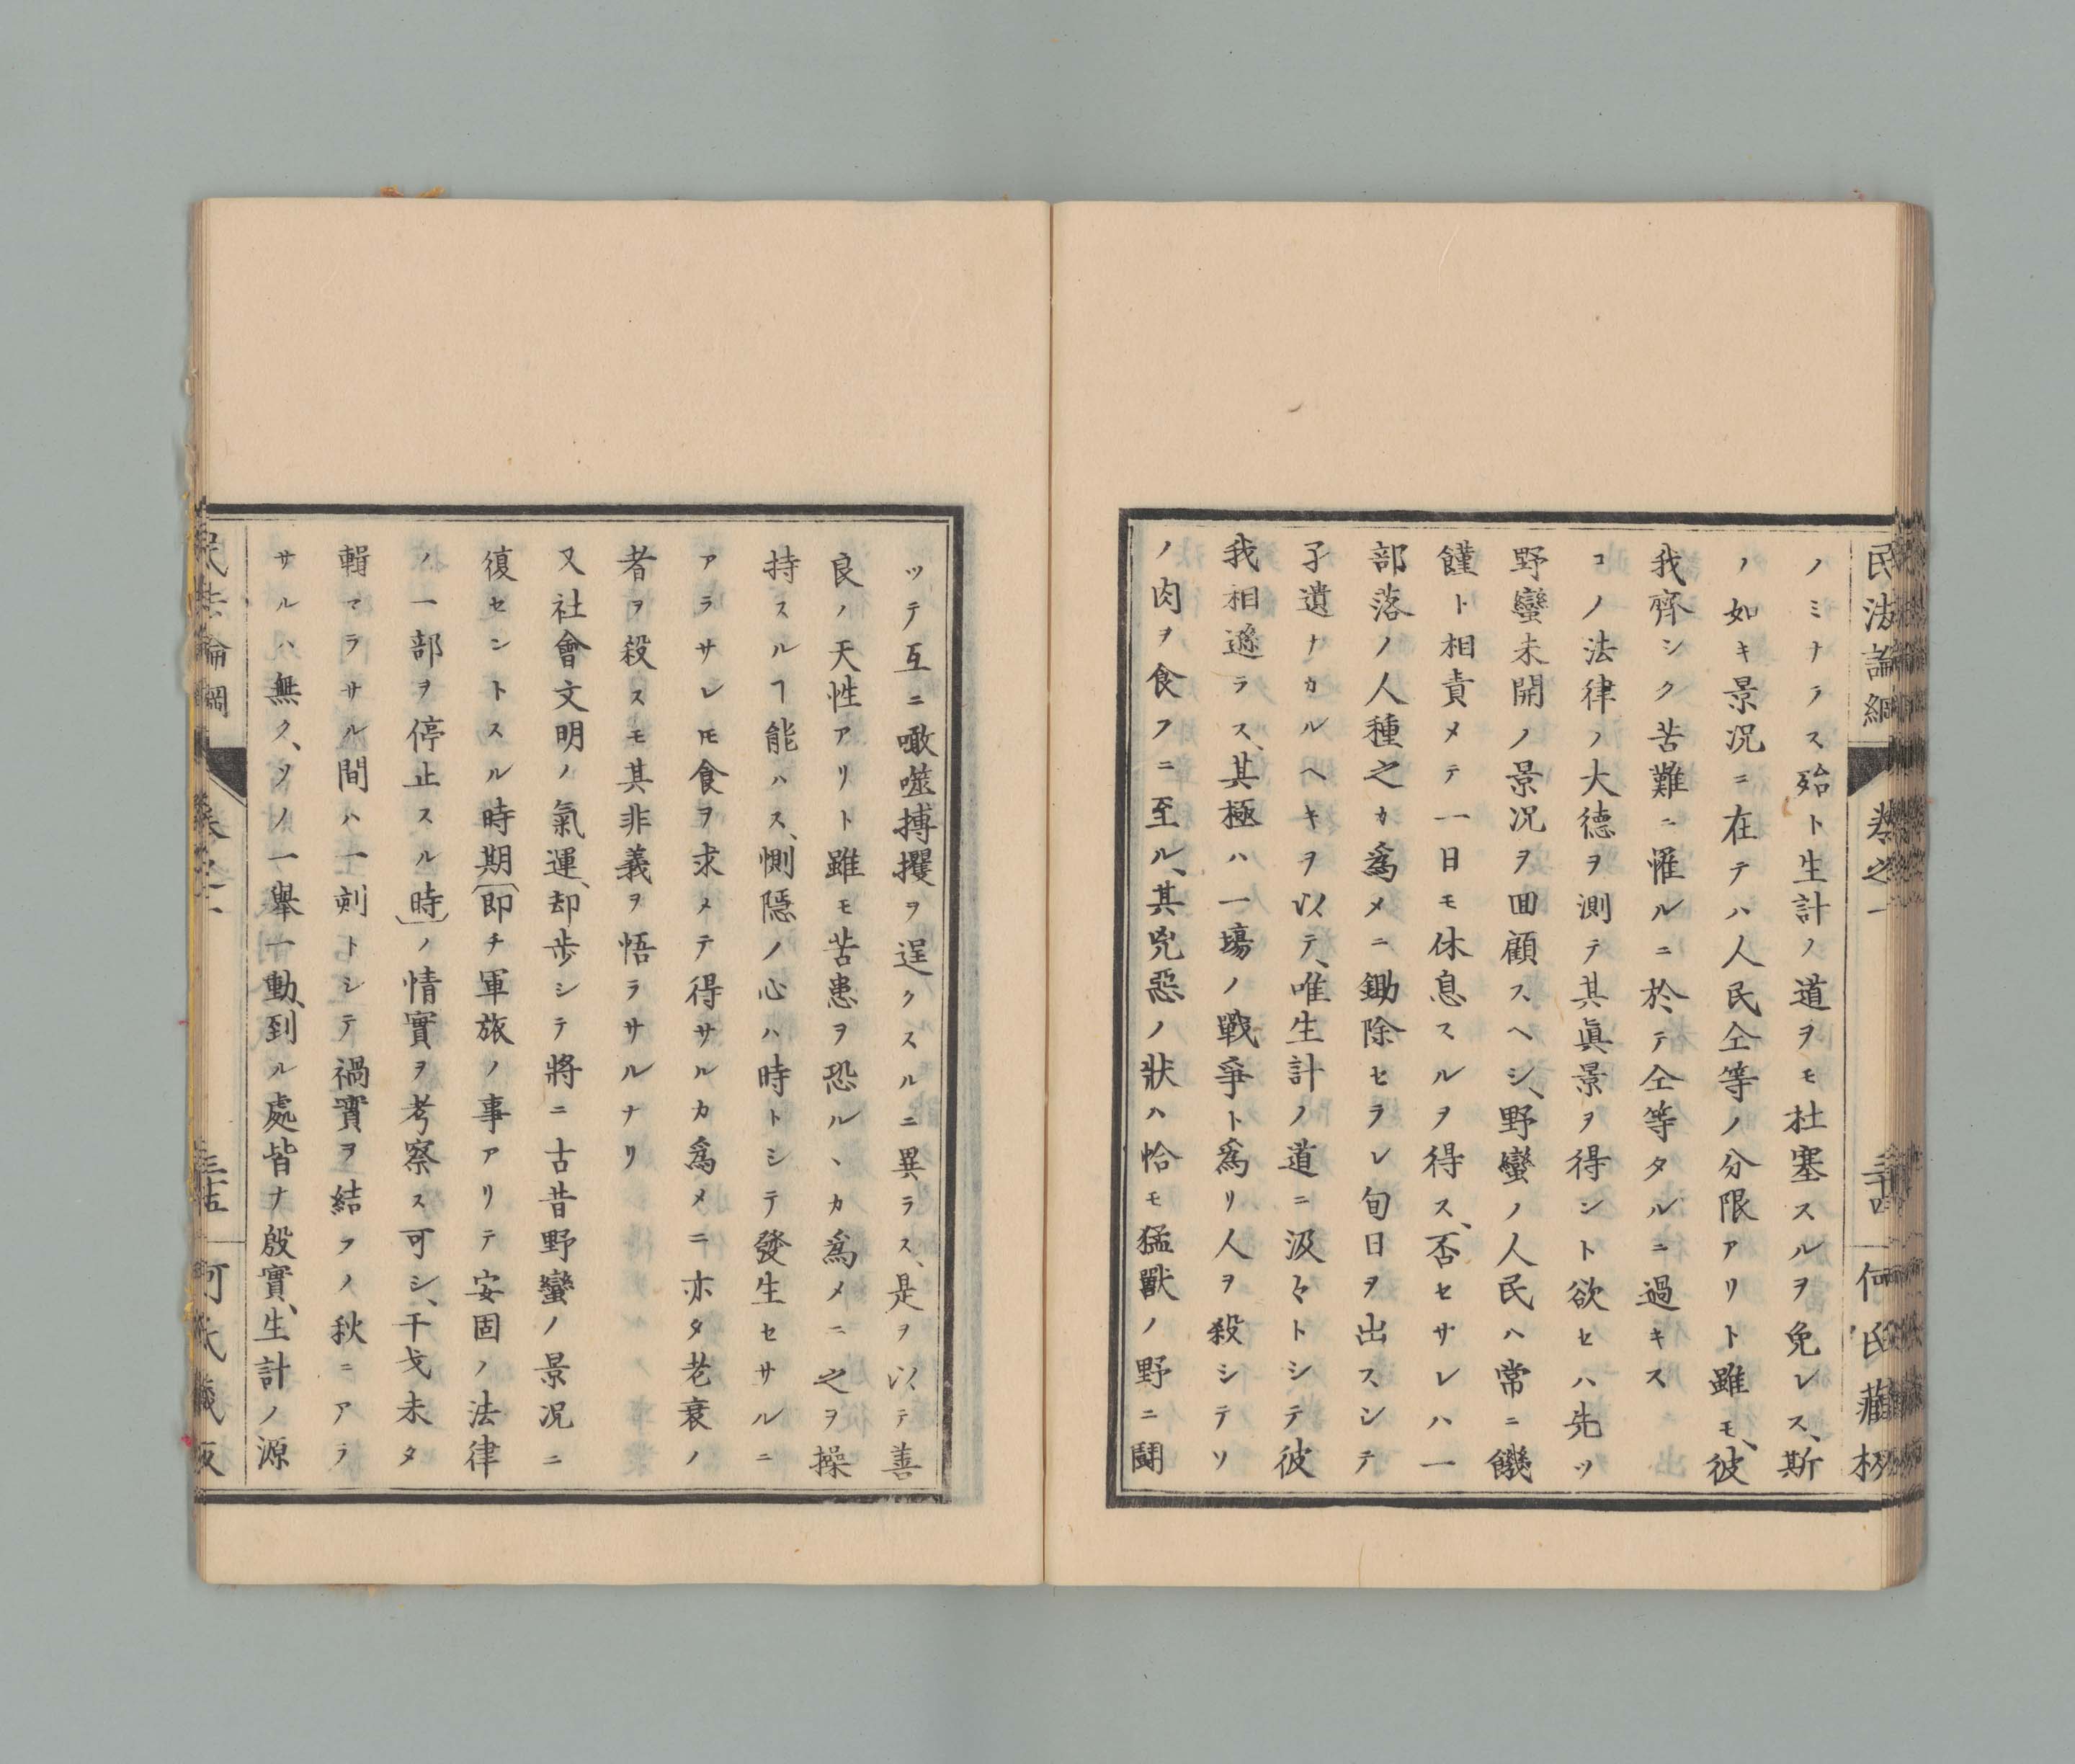 民法論綱 卷之一 三十四 何氏藏板
ノミナラス殆ト生計ノ道ヲモ杜塞スルヲ免レス、斯
ノ如キ景況ニ在テハ人民仝等ノ分限アリト雖モ、彼
我齊シク苦難ニ罹ルニ於テ仝等タルニ過キス
コノ法律ノ大德ヲ測テ其眞景ヲ得ント欲セハ先ツ
野蠻未開ノ景況ヲ回顧スヘシ、野蠻ノ人民ハ常ニ饑
饉ト相責メテ一日モ休息スルヲ得ス、否セサレハ一
部落ノ人種之カ爲メニ鋤除セラレ旬日ヲ出スシテ
孑遺ナカルヘキヲ以テ、唯生計ノ道ニ汲々トシテ彼
我相遜ラス、其極ハ一塲ノ戰爭ト爲リ人ヲ殺シテソ
ノ肉ヲ食フニ至ル、其兇惡ノ狀ハ恰モ猛獸ノ野ニ鬪
ツテ互ニ噉噬搏攫ヲ逞クスルニ異ラス、是ヲ以テ善
良ノ天性アリト雖モ苦患ヲ恐ルヽカ爲メニ之ヲ操
持スルヿ能ハス、惻隱ノ心ハ時トシテ發生セサルニ
アラサレ𪜈食ヲ求メテ得サルカ爲メニ亦タ老衰ノ
者ヲ殺スモ其非義ヲ悟ラサルナリ
又社會文明ノ氣運、却歩シテ將ニ古昔野蠻ノ景況ニ
復セントスル時期(即チ軍旅ノ事アリテ安固ノ法律
ノ一部ヲ停止スル時)ノ情實ヲ考察ス可シ、干戈未タ
輯マラサル間ハ一刻トシテ禍實ヲ結フノ秋ニアラ
サルハ無ク、ソノ一擧一動、到ル處皆ナ殷實、生計ノ源
民法論綱 卷之一 三十五 何氏藏板